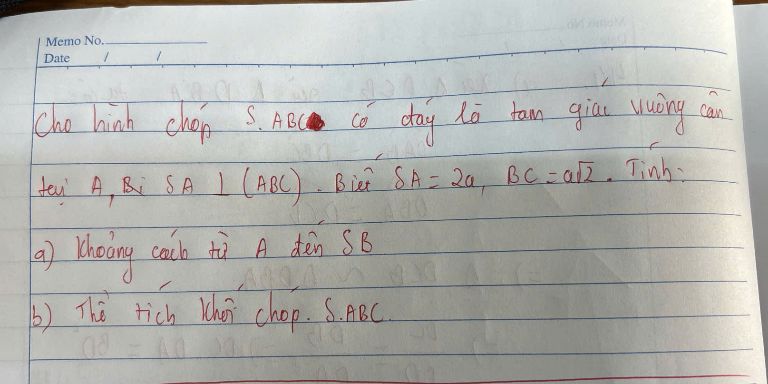 Memo No.
Date / /
Cho hình chóp S.ABC có đáy là tam giác vuông cân
tại A, SA ⊥ (ABC). Biết SA = 2a, BC = a√2. Tính:
a) Khoảng cách từ A đến SB
b) Thể tích khối chóp. S.ABC.